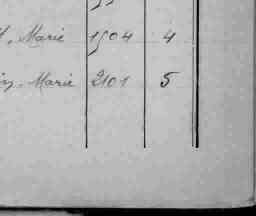 Marie 1504 4
Marie 2101 5